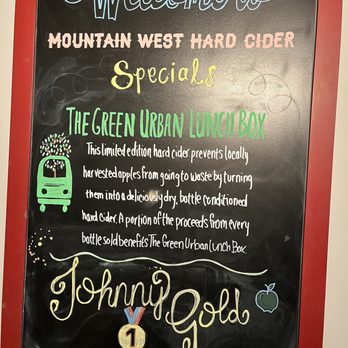 Welcome to
MOUNTAIN WEST HARD CIDER
Specials
THE GREEN URBAN LUNCH BOX
This limited edition hard cider prevents locally
harvested apples from going to waste by turning
them into a deliciously dry, bottle conditioned
hard cider. A portion of the proceeds from every
bottle sold benefits The Green Urban Lunch Box.
Johnny Gold
1